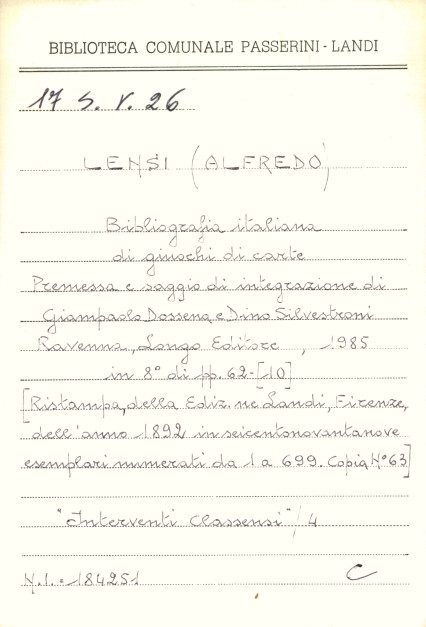 BIBLIOTECA COMUNALE PASSERINI-LANDI
17 S. V. 26
LENSI (ALFREDO)
Bibliografia italiana
di giuochi di carte
Premessa e saggio di integrazione di
Giampaolo Dossena e Dino Silvestroni
Ravenna, Longo Editore, 1985
in 8° di pp. 62-[10]
[Ristampa, della Ediz.ne Landi, Firenze,
dell'anno 1892 in seicentonovantanove
esemplari numerati da 1 a 699. Copia N° 63]
"Interventi Classensi"/4
N.I. = 184251 C